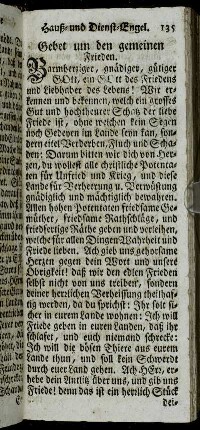 Hauß- und Dienst-Engel. 135
Gebet um den gemeinen
Frieden.
Barmhertziger, gnädiger, gütiger
GOtt, ein GOtt des Friedens
und Liebhaber des Lebens! Wir er-
kennen und bekennen, welch ein grosses
Gut und hochtheurer Schatz der liebe
Friede ist, ohne welchen kein Segen
noch Gedeyen im Lande seyn kan, son-
dern eitel Verderben, Fluch und Scha-
den: Darum bitten wir dich von Her-
tzen, du wollest alle christliche Potenta-
ten für Unfried und Krieg, und diese
Lande für Verheerung u. Verwüstung
gnädiglich und mächtiglich bewahren.
Allen hohen Potentaten friedsame Ge-
müther, friedsame Rathschläge, und
friedfertige Räthe geben und verleihen,
welche für allen Dingen Wahrheit und
Friede lieben. Ach gieb uns gehorsame
Hertzen gegen dein Wort und unsere
Obrigkeit! daß wir den edlen Frieden
selbst nicht von uns treiben, sondern
deiner herrlichen Verheissung theilhaf-
tig werden, da du sprichst: Ihr solt si-
cher in eurem Lande wohnen: Ich will
Friede geben in euren Landen, daß ihr
schlafet, und euch niemand schrecke:
Ich will die bösen Thiere aus eurem
Lande thun, und soll kein Schwerdt
durch euer Land gehen. Ach HErr, er-
hebe dein Antlitz über uns, und gib uns
Friede! denn das ist ein herrlich Stück
dei-